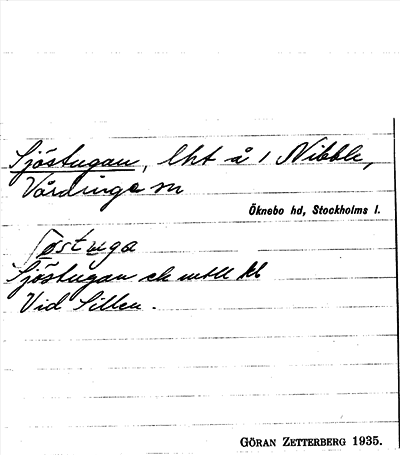 Sjöstugan, lht å 1 Nibble,
Vårdinge sn
Öknebo hd, Stockholms l.
Sjöstugan ek
Vid Sillen.
GÖRAN ZETTERBERG 1935.